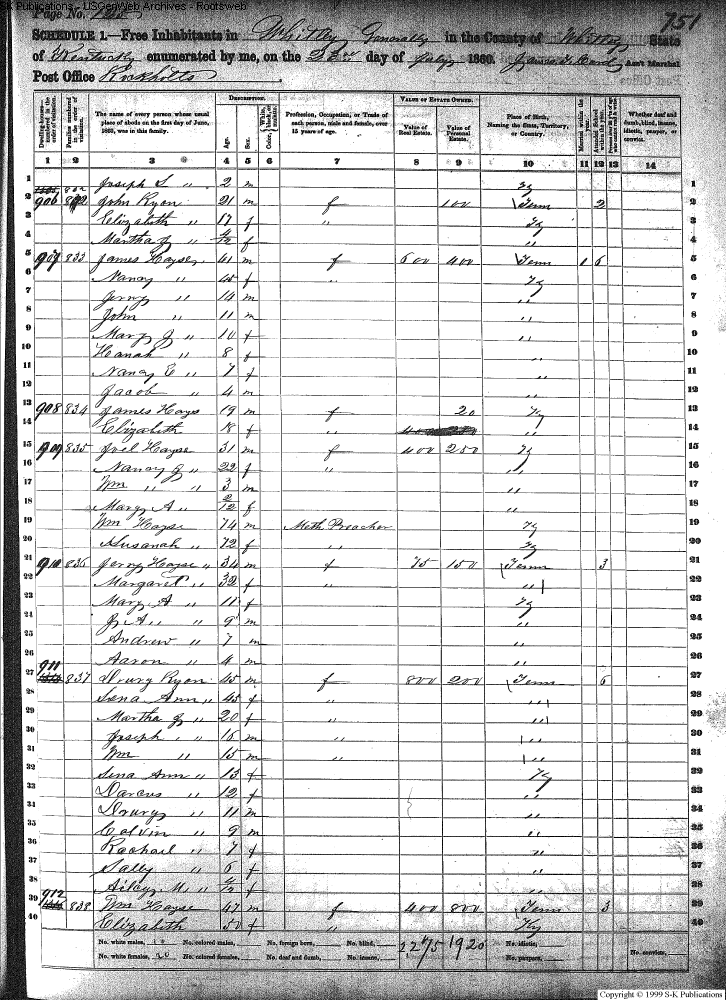 S-K Publications - USGenWeb Archives - Rootsweb
Page No. 125
751
SCHEDULE 1.—Free Inhabitants in Whitley Generally in the County of Whitley State
of Kentucky enumerated by me, on the day of July 1860. Ass't Marshal
Post Office Rockholts
Dwelling-houses—numbered in the order of visitation.
Families numbered in the order of visitation.
The name of every person whose usual place of abode on the first day of June, 1860, was in this family.
DESCRIPTION.
Age.
Sex.
Color, White, black, or mulatto.
Profession, Occupation, or Trade of each person, male and female, over 15 years of age.
VALUE OF ESTATE OWNED.
Value of Real Estate.
Value of Personal Estate.
Place of Birth, Naming the State, Territory, or Country.
Married within the year.
Attended School within the year.
Whether deaf and dumb, blind, insane, idiotic, pauper, or convict.
1 2 3 4 5 6 7 8 9 10 11 12 13 14
1 Joseph S " 2 m Ky 1
2 906 832 John Ryon 21 m f 100 Tenn 2 2
3 Elizabeth " 17 f " Ky 3
4 Martha J " 4/12 f " 4
5 907 833 James Hayse 41 m f 600 400 Tenn 1 6 5
6 Nancy " 45 f " Ky 6
7 Jerry " 14 m " 7
8 John " 11 m " 8
9 Mary J " 10 f " 9
10 Hanah " 8 f " 10
11 Nancy E " 7 f " 11
12 Jacob " 4 m " 12
13 908 834 James Hays 19 m f 20 Ky 13
14 Elizabeth 18 f " " 14
15 909 835 Joel Hayse 31 m f 400 250 Ky 15
16 Nancy J " 22 f " " 16
17 Wm " " 3 m " 17
18 Mary A " 2/12 f " 18
19 Wm Hayse 74 m Meth Preacher Ky 19
20 Susanah " 72 f " Ky 20
21 910 836 Jerry Hayse " 34 m f 75 150 Tenn 3 21
22 Margaret " 32 f " " 22
23 Mary A " 11 f Ky 23
24 " 9 m " 24
25 Andrew " 7 m " 25
26 Aaron " 4 m " 26
27 911 837 Drury Ryon 45 m f 800 200 Tenn 6 27
28 Sena Ann " 45 f " " 28
29 Martha J " 20 f " " 29
30 Joseph " " 16 m " " 30
31 Wm " 15 m " " 31
32 Sena Ann " 13 f Ky 32
33 Darcus " 12 f " 33
34 Drury " 11 m " 34
35 Colvin " 9 m " 35
36 Rachael " 7 f " 36
37 Sally " 6 f " 37
38 Ailcy M " 4/12 f " 38
39 912 838 Wm Hayse 47 m f 400 800 Tenn 3 39
40 Elizabeth 50 f " Ky 40
No. white males, No. colored males, No. foreign born, No. blind, 2275 1920 No. idiotic,
No. white females, 20 No. colored females, No. deaf and dumb, No. insane, No. paupers, No. convicts,
Copyright © 1999 S-K Publications